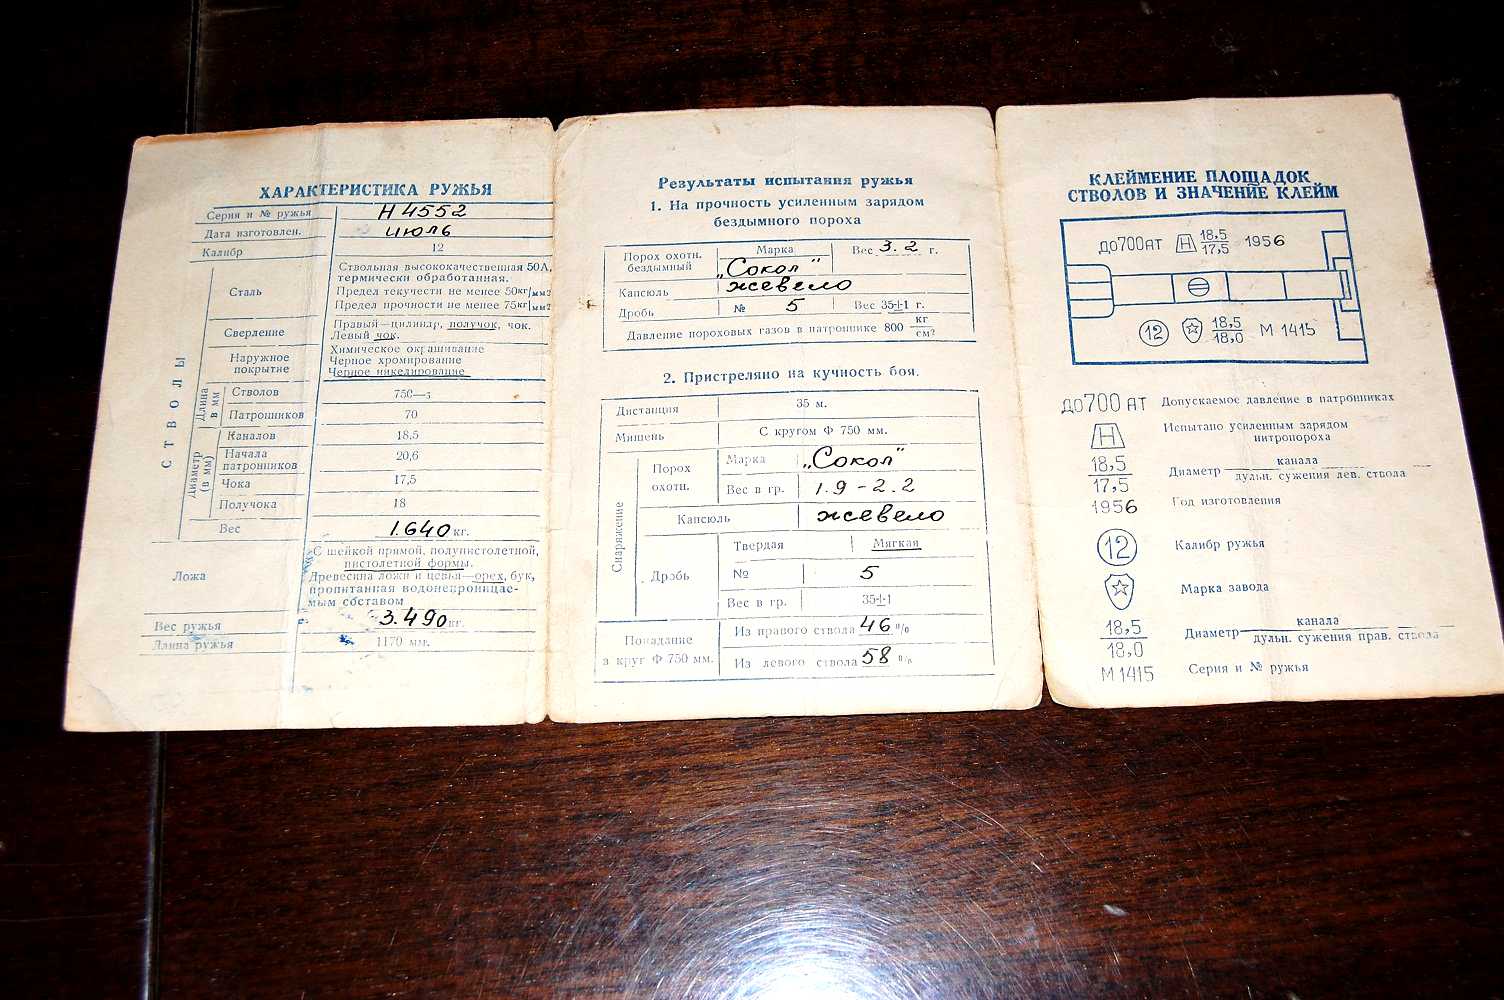 ХАРАКТЕРИСТИКА РУЖЬЯ
Серия и № ружья Н 4552
Дата изготовлен. июль
Калибр 12
СТВОЛЫ
Сталь
Ствольная высококачественная 50А,
термически обработанная.
Предел текучести не менее 50кг/мм²
Предел прочности не менее 75кг/мм²
Сверление
Правый—цилиндр, получок, чок.
Левый чок.
Наружное покрытие
Химическое окрашивание
Черное хромирование
Черное никелирование
Длина в мм
Стволов 750—5
Патронников 70
Диаметр (в мм)
Каналов 18,5
Начала патронников 20,6
Чока 17,5
Получока 18
Вес 1.640 кг.
Ложа
С шейкой прямой, полупистолетной,
пистолетной формы.
Древесина ложи и цевья—орех, бук,
пропитанная водонепроницае-
мым составом
Вес ружья 3.490 кг.
Длина ружья 1170 мм.
Результаты испытания ружья
1. На прочность усиленным зарядом
бездымного пороха
Порох охотн. бездымный
Марка „Сокол" Вес 3.2 г.
Капсюль жевело
Дробь № 5 Вес 35±1 г.
Давление пороховых газов в патроннике 800 кг/см²
2. Пристреляно на кучность боя.
Дистанция 35 м.
Мишень С кругом Ф 750 мм.
Снаряжение
Порох охотн.
Марка „Сокол"
Вес в гр. 1.9-2.2
Капсюль жевело
Дробь
Твердая Мягкая
№ 5
Вес в гр. 35±1
Попадание
в круг Ф 750 мм.
Из правого ствола 46 %
Из левого ствола 58 %
КЛЕЙМЕНИЕ ПЛОЩАДОК
СТВОЛОВ И ЗНАЧЕНИЕ КЛЕЙМ
до700АТ Н 18,5/17,5 1956
12 18,5/18,0 М 1415
до700 АТ Допускаемое давление в патронниках
Н Испытано усиленным зарядом
нитропороха
18,5/17,5 Диаметр канала/дульн. сужения лев. ствола
1956 Год изготовления
12 Калибр ружья
Марка завода
18,5/18,0 Диаметр канала/дульн. сужения прав. ствола
М 1415 Серия и № ружья